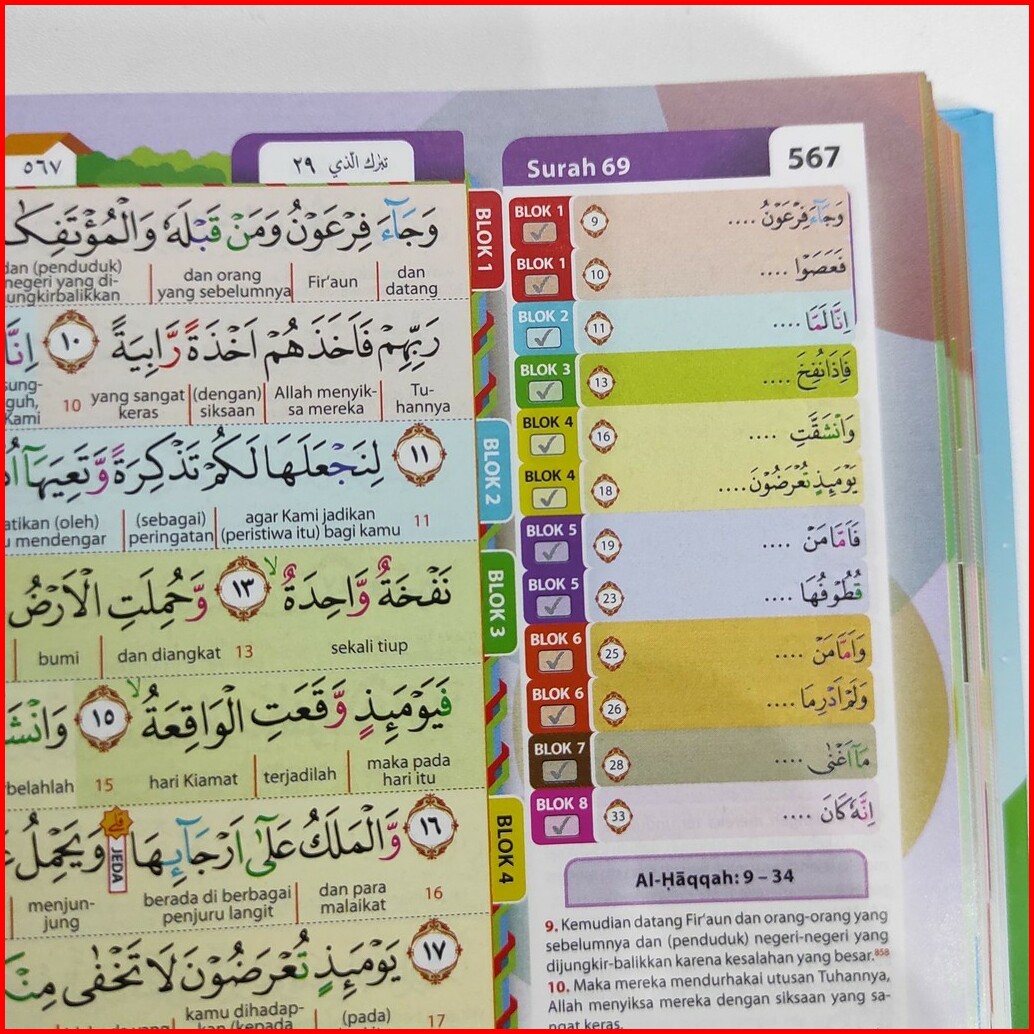 ٥٦٧
تبٰرك الّذي ٢٩
Surah 69
567
وَجَاۤءَ فِرْعَوْنُ وَمَنْ قَبْلَهٗ وَالْمُؤْتَفِكٰ
dan datang
Fir'aun
dan orang yang sebelumnya
dan (penduduk) negeri yang di- ungkirbalikkan
BLOK 1
رَبِّهِمْ فَاَخَذَهُمْ اَخْذَةً رَّابِيَةً ١٠ اِنَّا
Tu- hannya
Allah menyik- sa mereka
(dengan) siksaan
yang sangat keras
10
sung- guh, Kami
لِنَجْعَلَهَا لَكُمْ تَذْكِرَةً وَّتَعِيَهَآ
١١
11
agar Kami jadikan (peristiwa itu) bagi kamu
(sebagai) peringatan
atikan (oleh)
u mendengar
BLOK 2
نَفْخَةٌ وَّاحِدَةٌ ۙ ١٣ وَّحُمِلَتِ الْاَرْضُ
sekali tiup
13
dan diangkat
bumi
BLOK 3
فَيَوْمَىِٕذٍ وَّقَعَتِ الْوَاقِعَةُ ۙ ١٥ وَانْشَ
maka pada hari itu
terjadilah
hari Kiamat
15
belahlah
١٦ وَّالْمَلَكُ عَلٰٓى اَرْجَاۤىِٕهَا ۗ وَيَحْمِلُ
JEDA
16
dan para malaikat
berada di berbagai penjuru langit
menjun- jung
BLOK 4
١٧ يَوْمَىِٕذٍ تُعْرَضُوْنَ لَا تَخْفٰى مِنْكُ
17
(pada)
kamu dihadap-
BLOK 1 9 وَجَاۤءَ فِرْعَوْنُ ....
BLOK 1 10 فَعَصَوْا ....
BLOK 2 11 اِنَّا لَمَّا ....
BLOK 3 13 فَاِذَا نُفِخَ ....
BLOK 4 16 وَانْشَقَّتِ ....
BLOK 4 18 يَوْمَىِٕذٍ تُعْرَضُوْنَ ....
BLOK 5 19 فَاَمَّا مَنْ ....
BLOK 5 23 قُطُوْفُهَا ....
BLOK 6 25 وَاَمَّا مَنْ ....
BLOK 6 26 وَلَمْ اَدْرِ مَا ....
BLOK 7 28 مَآ اَغْنٰى ....
BLOK 8 33 اِنَّهٗ كَانَ ....
Al-Ḥāqqah: 9 – 34
9. Kemudian datang Fir'aun dan orang-orang yang
sebelumnya dan (penduduk) negeri-negeri yang
dijungkir-balikkan karena kesalahan yang besar.⁸⁵⁸
10. Maka mereka mendurhakai utusan Tuhannya,
Allah menyiksa mereka dengan siksaan yang sa-
ngat keras.